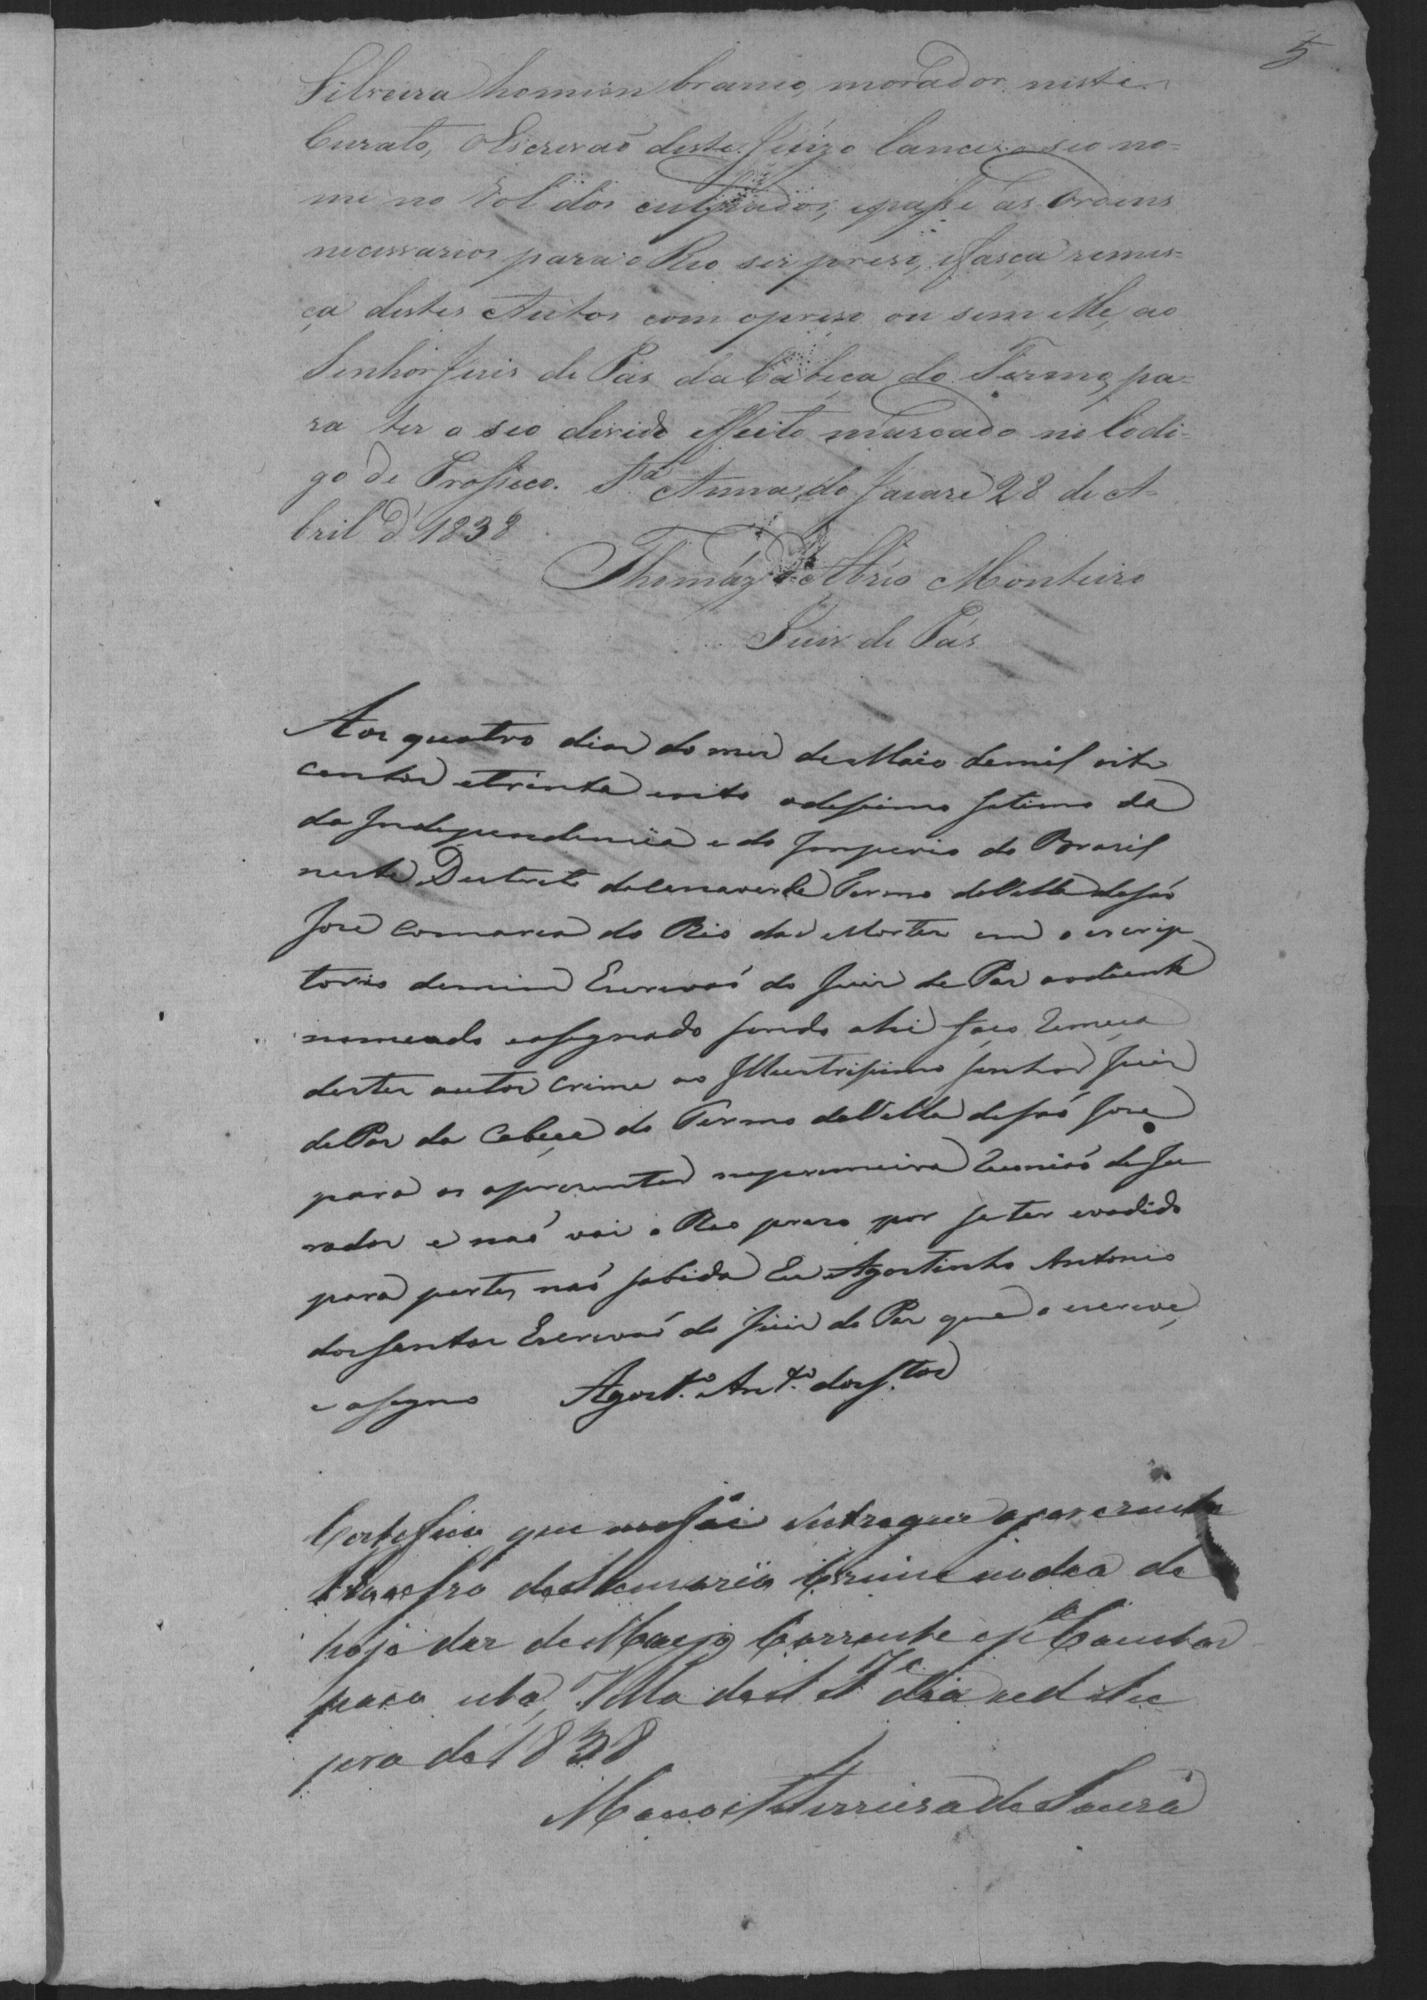 5
Silveira homem branco, morador neste
Curato, o Escrivaõ deste Juizo lance o seo no=
me no Rol dos culpados, e passe as Ordens
necessarias para o Reo ser preso, e fasça remes=
ça destes Autos com o preso ou sem elle, ao
Senhor Juis de Pas da Cabeça do Termo, pa=
ra ter o seo divido effeito marcado no Codi=
go de Prosseço. Sta Anna do Jacaré 28 de A=
bril d'1838
Thomáz d'Abrêo Monteiro
Juiz de Pás
Aos quatro dias do mes de Maio de mil oito
centos e trinta e oito o desimo setimo da
da Independencia e do Imperio do Brasil
neste Destrito do Canaverde Termo da Villa de saõ
José Comarca do Rio das Mortes em o escrip
torio de mim Escrivaõ do Juis de Pas ao diante
nomeado e assignado sendo ahi faço remeça
destes autos crime ao Illustrissimo senhor Juis
de Pas da Cabeça do Termo da Villa de saõ José
para os aprezentar na primeira reuniaõ de Ju
rados e naõ vai o Reo prezo por se ter evadido
para partes naõ sabida Eu Agostinho Antonio
dos santos Escrivaõ do Juis de Pas que o escreve,
e assigno Agost.o Ant.o dos S.tos
Certefico que me foi entregue o prezente
Prossesso de Summario Crime no dia de
hoje des de Mayo Corrente e p.a Constar
paço esta, Villa de S. J.e dia ed
era de 1838
Manoel Ferreira de Souza